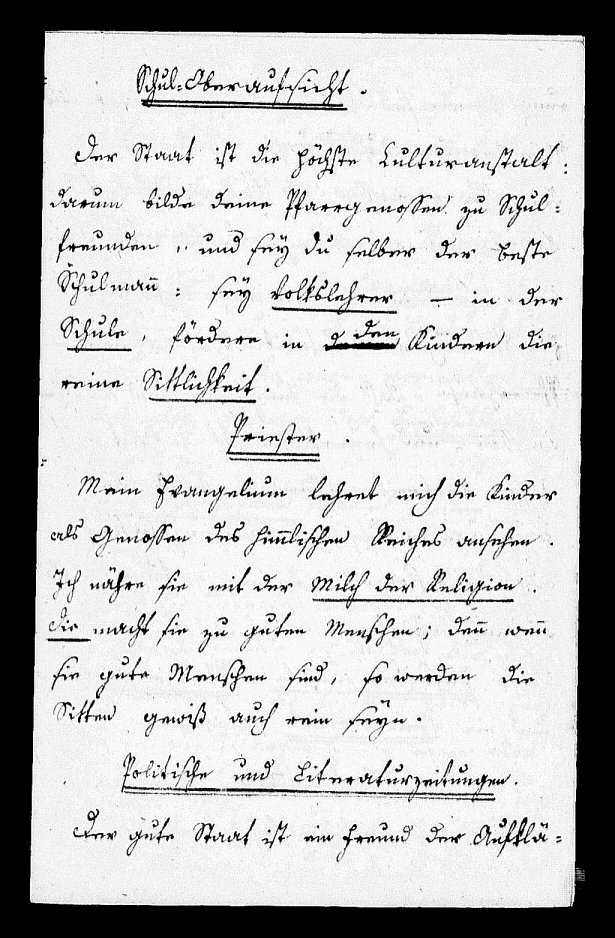 Schul-Oberaufsicht.
Der Staat ist die höchste Culturanstalt:
darum bilde deine Pfarrgenossen zu Schul-
freunden, und sey du selber der beste
Schulmañ: sey Volkslehrer – in der
Schule, fördere in den Kindern die
reine Sittlichkeit.
Priester.
Mein Evangelium lehret mich die Kinder
als Genossen des him̄lischen Reiches ansehen.
Ich nähre sie mit der Milch der Religion.
Die macht sie zu guten Menschen; den̄ wen̄
sie gute Menschen sind, so werden die
Sitten gewiß auch rein seyn.
Politische und Literaturzeitungen.
Der gute Staat ist ein Freund der Aufklä-